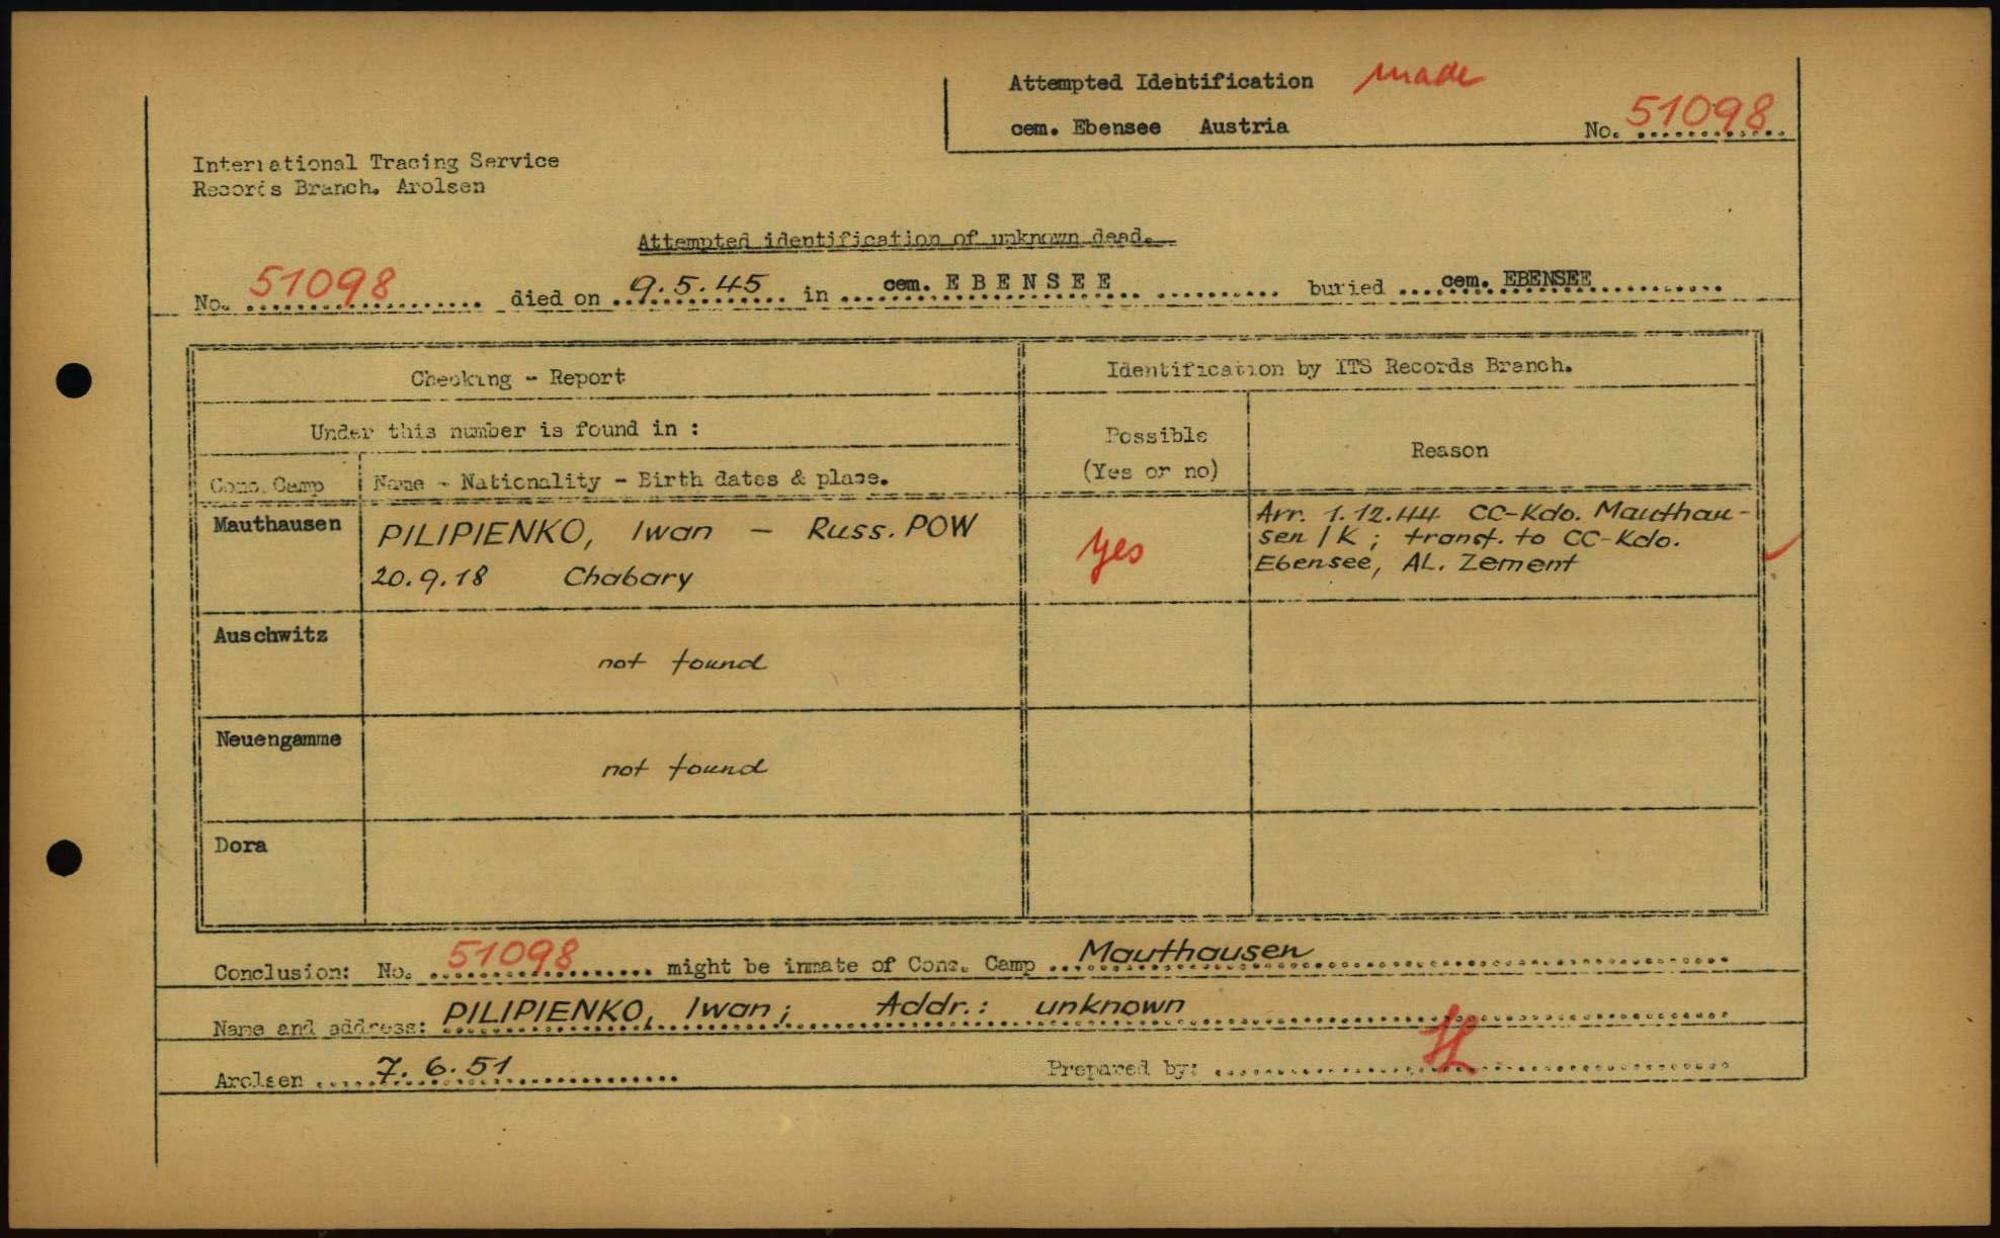 Attempted Identification made
cem. Ebensee Austria No. 51098
International Tracing Service
Records Branch. Arolsen
Attempted identification of unknown dead.
No. 51098 died on 9.5.45 in cem. EBENSEE buried cem. EBENSEE
Checking - Report
Identification by ITS Records Branch.
Under this number is found in :
Possible
(Yes or no)
Reason
Conc. Camp
Name - Nationality - Birth dates & place.
Mauthausen
PILIPIENKO, Iwan - Russ. POW
20.9.18 Chabary
yes
Arr. 1.12.44 CC-Kdo. Mauthau-
sen /K; transf. to CC-Kdo.
Ebensee, AL. Zement
Auschwitz
not found
Neuengamme
not found
Dora
Conclusion: No. 51098 might be inmate of Conc. Camp Mauthausen
Name and address: PILIPIENKO, Iwan; Addr.: unknown
Arolsen 7.6.51 Prepared by: